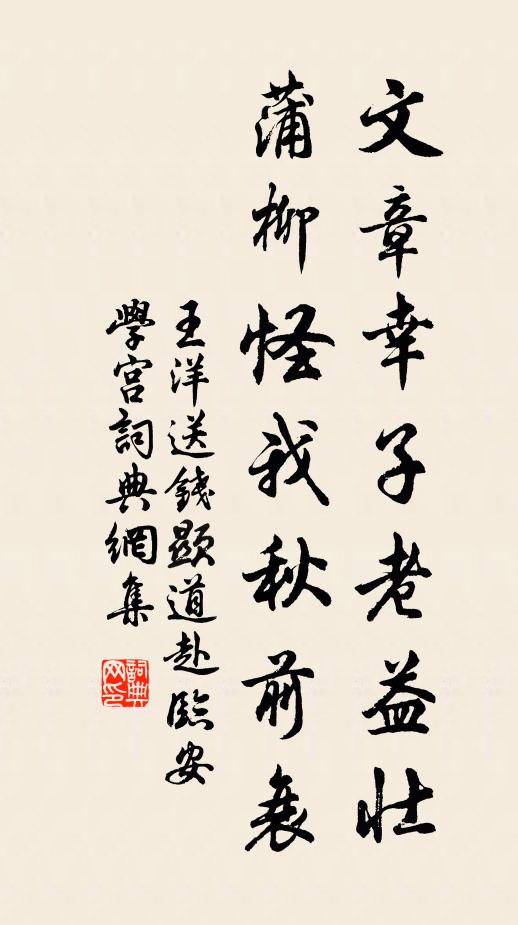 文章幸子老益壮
蒲柳怪我秋前衰
王洋送錢顯道赴臨安
學宫詞典網集
詞典网印